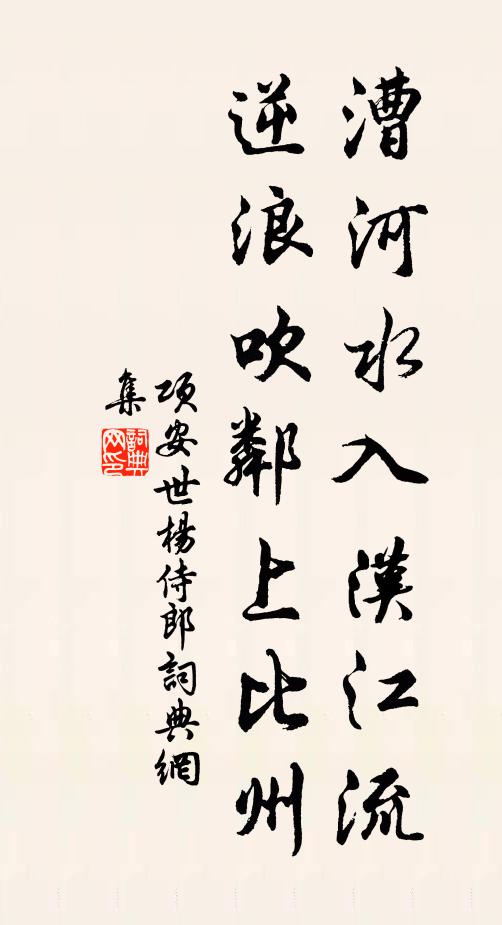 漕河水入漢江流
逆浪吹鄰上比州
項安世楊侍郎詞典網
集
詞典
网印